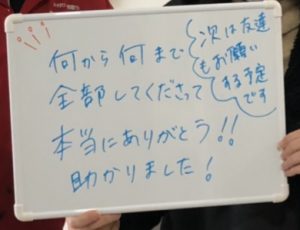 何から何まで
全部してくださって
本当にありがとう!!
助かりました!
次は友達
もお願い
する予定
です